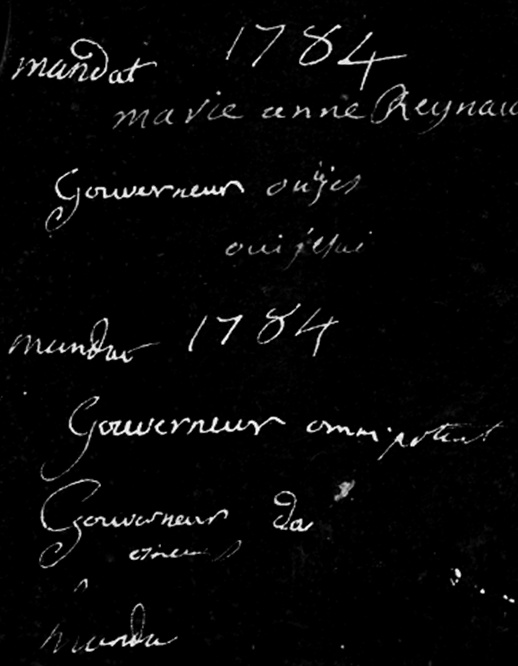 1784
mandat
marie anne Reynau
Gouverneur
oui
mandat 1784
Gouverneur omnipotent
Gouverneur da
manda